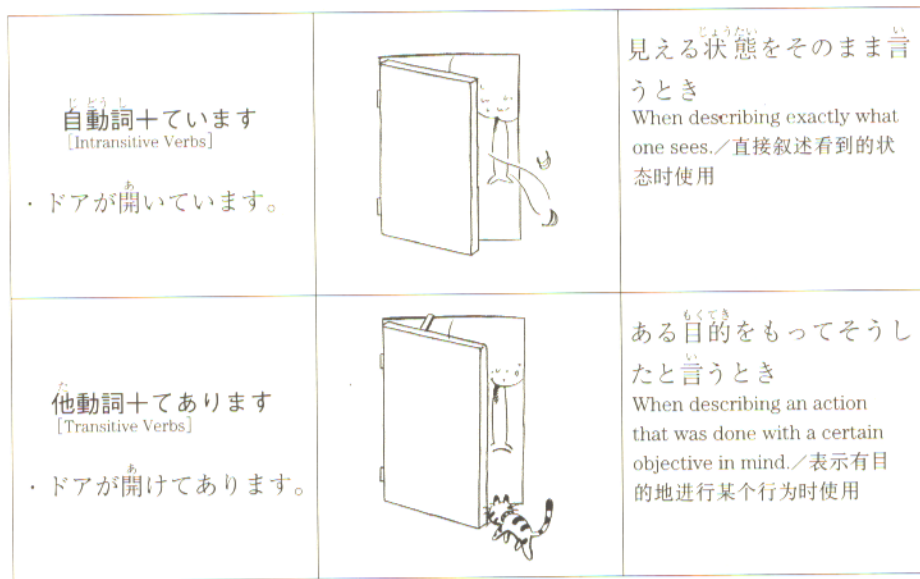 自動詞+ています
[Intransitive Verbs]
・ドアが開いています。
見える状態をそのまま言
うとき
When describing exactly what
one sees./直接叙述看到的状
态时使用
他動詞+てあります
[Transitive Verbs]
・ドアが開けてあります。
ある目的をもってそうし
たと言うとき
When describing an action
that was done with a certain
objective in mind./表示有目
的地进行某个行为时使用